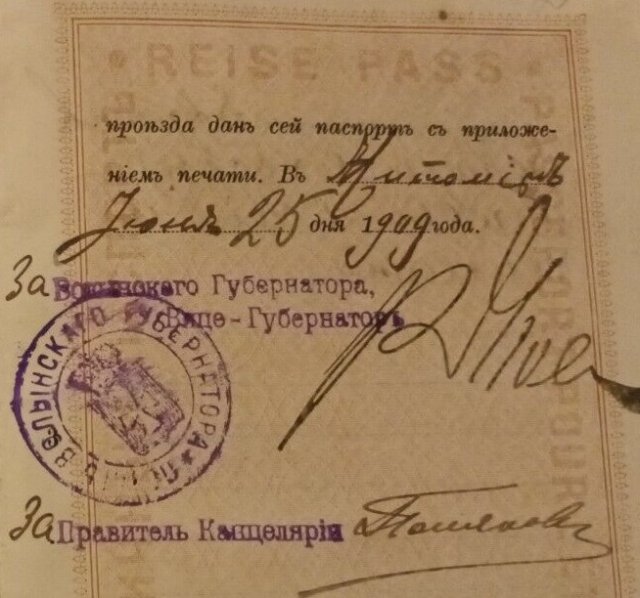 REISE PASS
проѣзда данъ сей паспортъ съ приложе-
ніемъ печати. Въ Житомірѣ
Іюня 25 дня 1909 года.
За Волынскаго Губернатора,
Вице-Губернаторъ
ВОЛЫНСКАГО ГУБЕРНАТОРА
За Правитель Канцеляріи